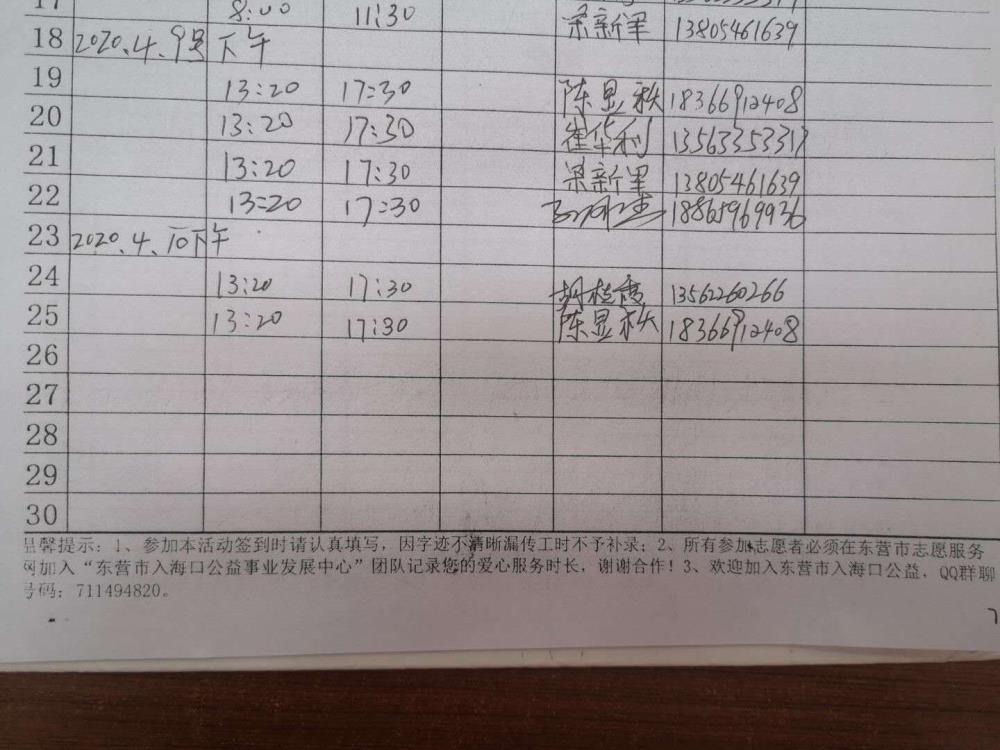 17 8:00 11:30 梁新军 13805461639
18 2020.4.9号 下午
19 13:20 17:30 陈显秋 18366912408
20 13:20 17:30 崔华利 13563353317
21 13:20 17:30 梁新军 13805461639
22 13:20 17:30 18865969936
23 2020.4.10下午
24 13:20 17:30 胡桂秀 13562260266
25 13:20 17:30 陈显秋 18366912408
26
27
28
29
30
温馨提示：1、参加本活动签到时请认真填写，因字迹不清晰漏传工时不予补录；2、所有参加志愿者必须在东营市志愿服务
网加入“东营市入海口公益事业发展中心”团队记录您的爱心服务时长，谢谢合作！3、欢迎加入东营市入海口公益，QQ群聊
号码：711494820。